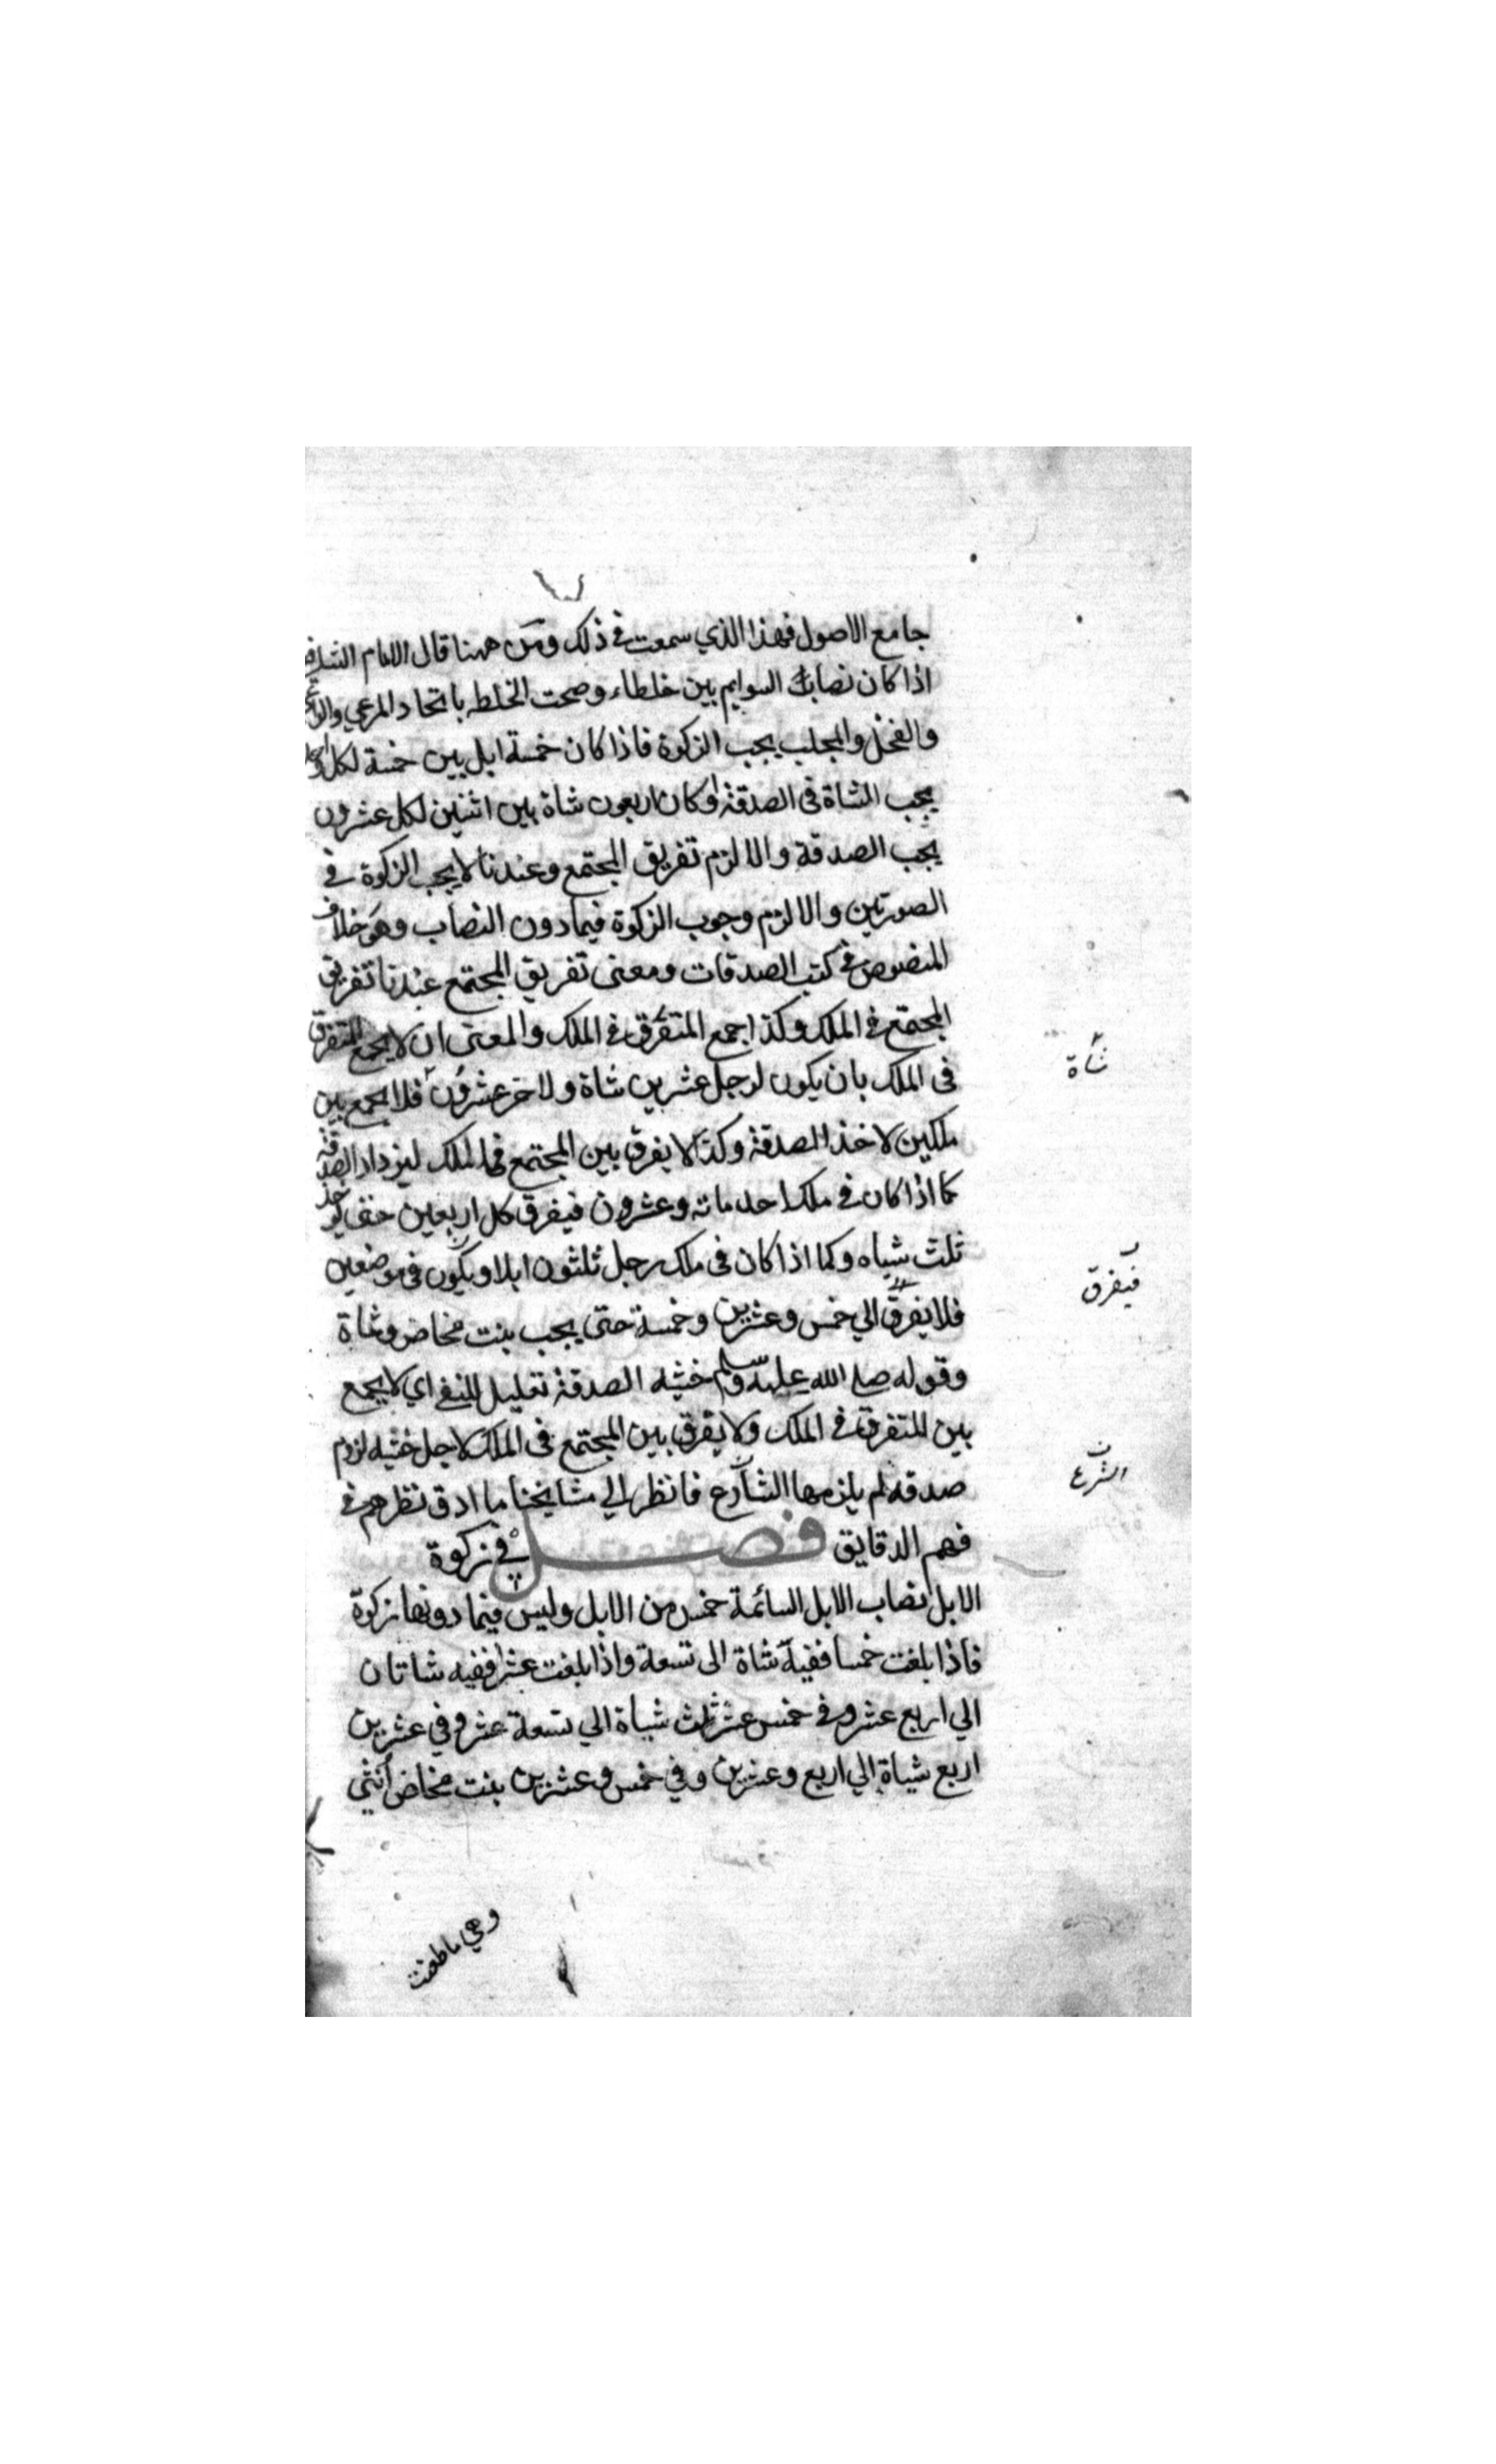 جامع الاصول فهذا الذي سمعت في ذلك ومن ههنا قال الامام الشافعي
اذا كان نصابك السوايم بين خلطاء وصحت الخلطه باتحاد المرعي
والفحل والمحلب يجب الزكوة فاذا كان خمسة ابل بين خمسة لكل
يجب الشاة في الصدقة او كان اربعون شاة بين اثنين لكل عشرون
يجب الصدقة والا لزم تفريق المجتمع وعندنا لا يجب الزكوة في
الصورتين والا لزم وجوب الزكوة فيما دون النصاب وهو خلاف
المنصوص في كتب الصدقات ومعنى تفريق المجتمع عندنا تفريق
المجتمع في الملك وكذا جمع المتفرق في الملك والمعنى ان لا يجمع المتفرق
في الملك بان يكون لرجل عشرين شاة ولاخر عشرون فلا يجمع بين
شاة
ملكين لاخذ الصدقة وكذا لا يفرق بين المجتمع في الملك ليزداد الصدقة
كما اذا كان في ملك احد ماته وعشرون فيفرق كل اربعين حتى يوخذ
ثلث شياه وكما اذا كان في ملك رجل ثلثون ابلا ويكون في موضعين
فلا يفرق الي خمس وعشرين وخمسة حتى يجب بنت مخاض وشاة
فيفرق
وقوله صلى الله عليه وسلم خشيه الصدقة تعليل للنفي اي لا يجمع
بين المتفرق في الملك ولا يفرق بين المجتمع في الملك لاجل خشيه لزوم
صدقه لم يلزمها الشارع فانظر الي مشايخنا ما ادق نظرهم في
الشرع
فهم الدقايق فصل في زكوة
الابل نصاب الابل السائمة خمس من الابل وليس فيما دونها زكوة
فاذا بلغت خمسا ففيه شاة الى تسعة واذا بلغت عشرا ففيه شاتان
الي اربع عشر وفي خمس عشر ثلث شياة الي تسعة عشر وفي عشرين
اربع شياة الي اربع وعشرين وفي خمس وعشرين بنت مخاض انثي
وهي ما طعنت